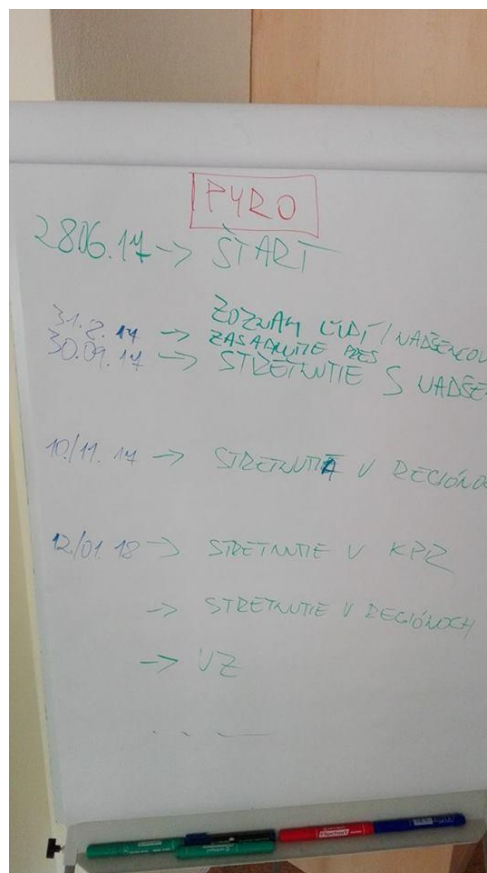 PYRO
28.06.17 -> ŠTART
31.8.17 -> ZOZNAM ĽUDÍ / NADŠENCOV
ZASADNUTIE PRES
30.09.17 -> STRETNUTIE S NADŠE
10./11. 17 -> STRETNUTIA V REGIÓNO
12./01. 18 -> STRETNUTIE V KPR
-> STRETNUTIE V REGIÓNOCH
-> VZ